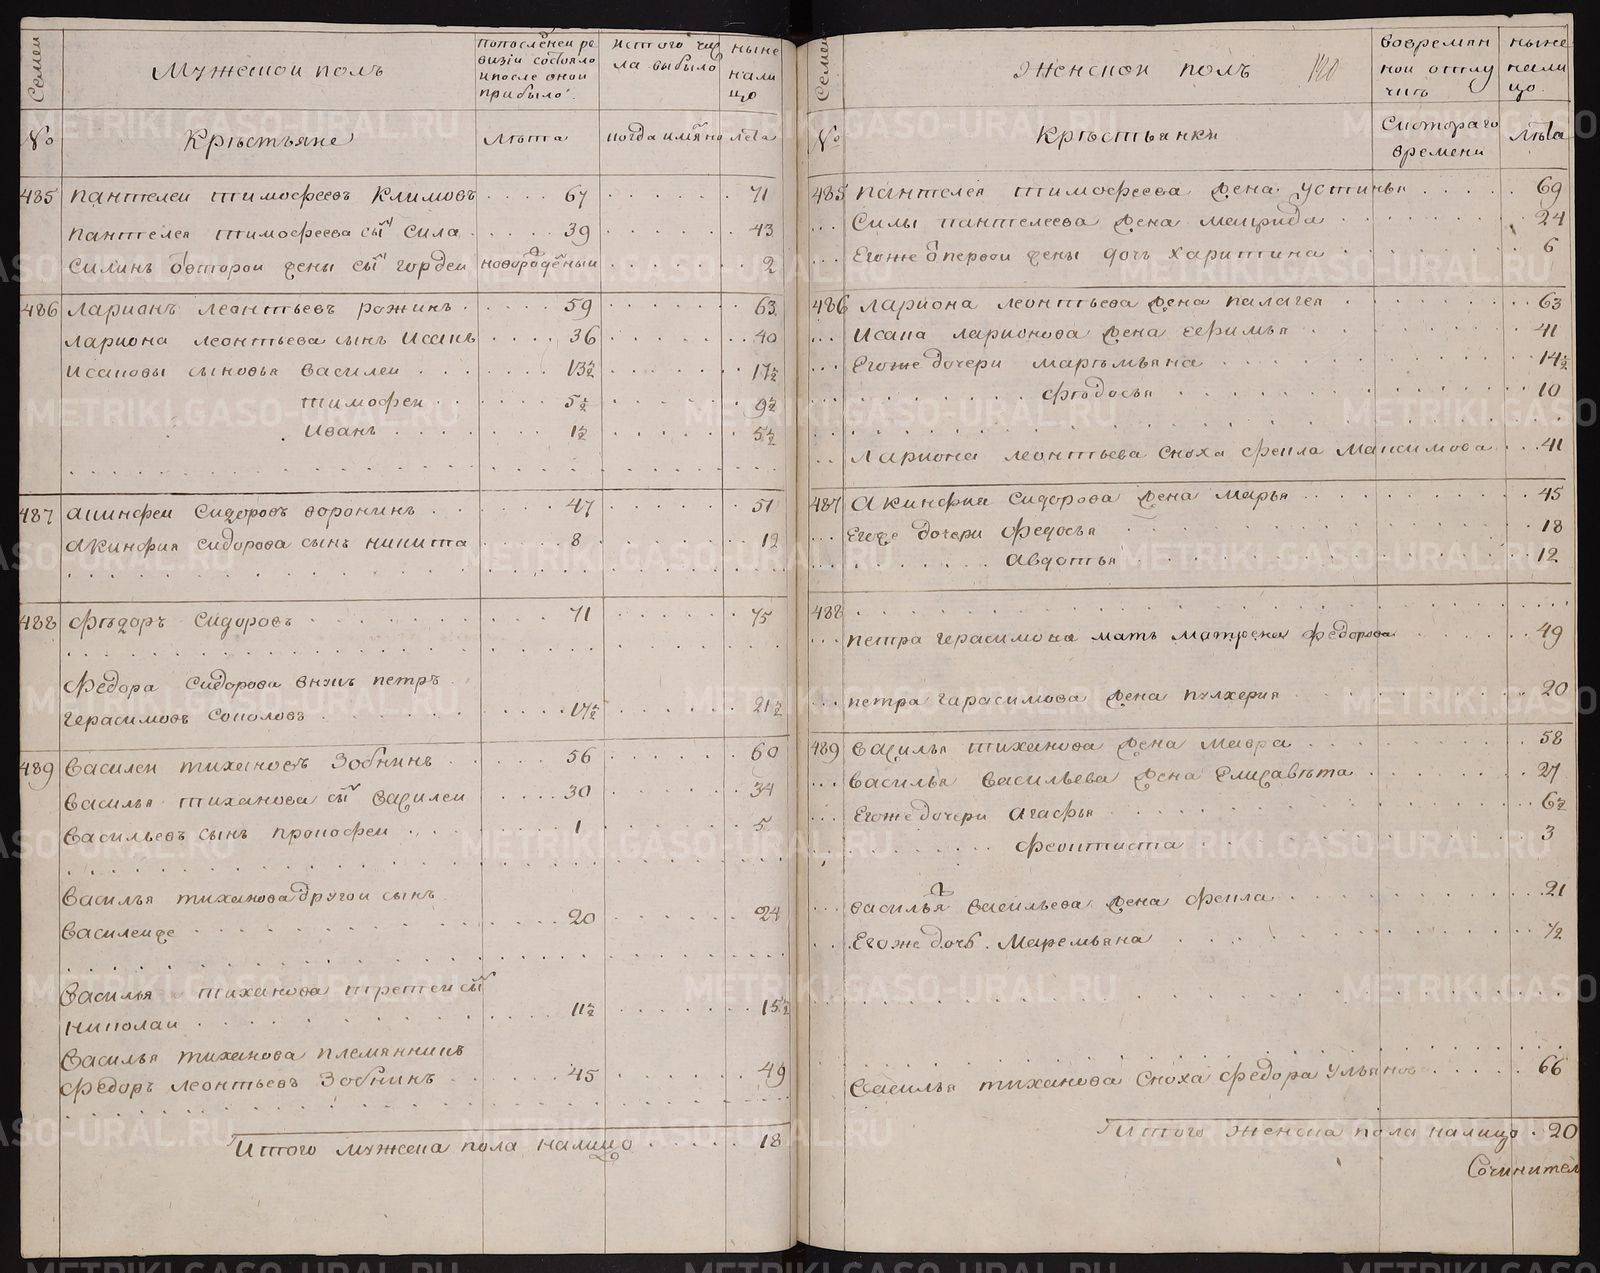 Семеи
Мужескои полъ
попоследнеи ре
визiи состояло
ипосле онои
прибыло
истого чис
ла выбыло
ныне
нали
цо
№
Крѣстьяне
лѣта
когда имянно
лѣта
485 пантелеи тимофеевъ Климовъ 67 71
пантелея тимофеева сын сила 39 43
силинъ отвторои жены сын гордеи новорожденыи 2
486 Ларионъ леонтьевъ рожинъ 59 63
лариона леонтьева сынъ Исакъ 36 40
исаковы сыновья василеи 13½ 17½
тимофеи 5½ 9½
иванъ 1½ 5½
487 акинфеи Сидоровъ воронинъ 47 51
акинфия сидорова сынъ никита 8 12
488 Фѣдоръ Сидоровъ 71 75
Федора сидорова внукъ петръ
герасимовъ соколовъ 17½ 21½
489 Василеи тихановъ Зобнинъ 56 60
василья тиханова сын василеи 30 34
васильевъ сынъ прокофеи 1 5
василья тиханова другои сынъ
василеиже 20 24
василья тиханова третеи сын
николаи 11½ 15½
василья тиханова племянникъ
Федоръ леонтьевъ Зобнинъ 45 49
Итого мужска пола налицо 18
Семеи
Женскои полъ
140
вовремян
нои отлу
чкѣ
ныне
нали
цо
№
Крѣстьянки
Скотораго
времени
лѣта
485 пантелея тимофеева жена устинья 69
силы пантелеева жена макрида 24
Егоже от первои жены дочь харитина 6
486 лариона леонтьева жена палагея 63
исака ларионова жена ефимья 41
Егоже дочери маремьяна 14½
фѣдосья 10
лариона леонтьева сноха фекла максимова 41
487 акинфия сидорова жена марья 45
Егоже дочери федосья 18
авдотья 12
488
петра герасимова мать матрена федорова 49
петра гарасимова жена пулхерия 20
489 василья тиханова жена мавра 58
василья васильева жена Елисавѣта 27
Егоже дочери агафья 6½
феоктиста 3
василья васильева жена фекла 21
Егоже дочь маремьяна ½
василья тиханова сноха федора ульянова 66
Итого женска пола налицо 20
Сочинител
METRIKI.GASO-URAL.RU